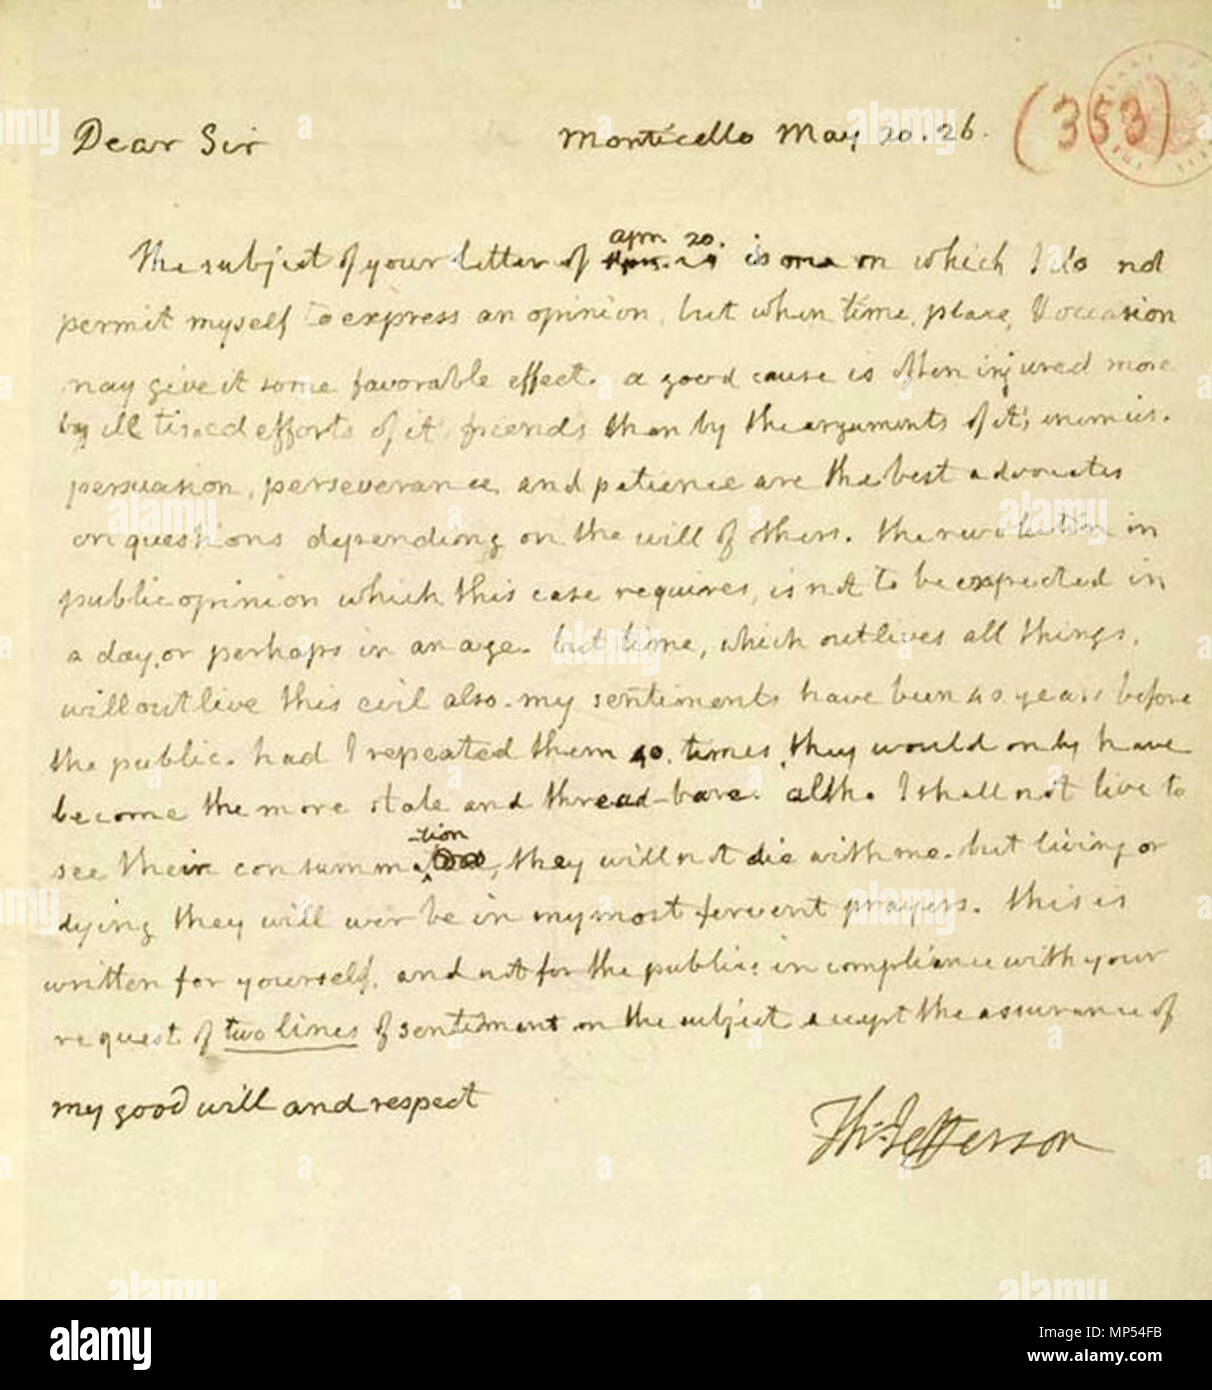 Dear Sir Monticello May 20. 26. (353)
apr. 20.
The subject of your letter of is one on which I do not
permit myself to express an opinion, but when time, place, & occasion
may give it some favorable effect. a good cause is often injured more
by ill timed efforts of it's friends than by the arguments of it's enemies.
persuasion, perseverance, and patience are the best advocates
on questions depending on the will of others. the revolution in
public opinion which this case requires, is not to be expected in
a day, or perhaps in an age. but time, which outlives all things,
will outlive this evil also. my sentiments have been 40 years before
the public. had I repeated them 40. times, they would only have
become the more stale and thread-bare. altho I shall not live to
-tion
see their consumma, they will not die with me. but living or
dying they will ever be in my most fervent prayers. this is
written for yourself, and not for the public: in compliance with your
request of two lines of sentiment on the subject. accept the assurance of
my good will and respect
Th: Jefferson
alamy
Image ID: MP54FB
www.alamy.com